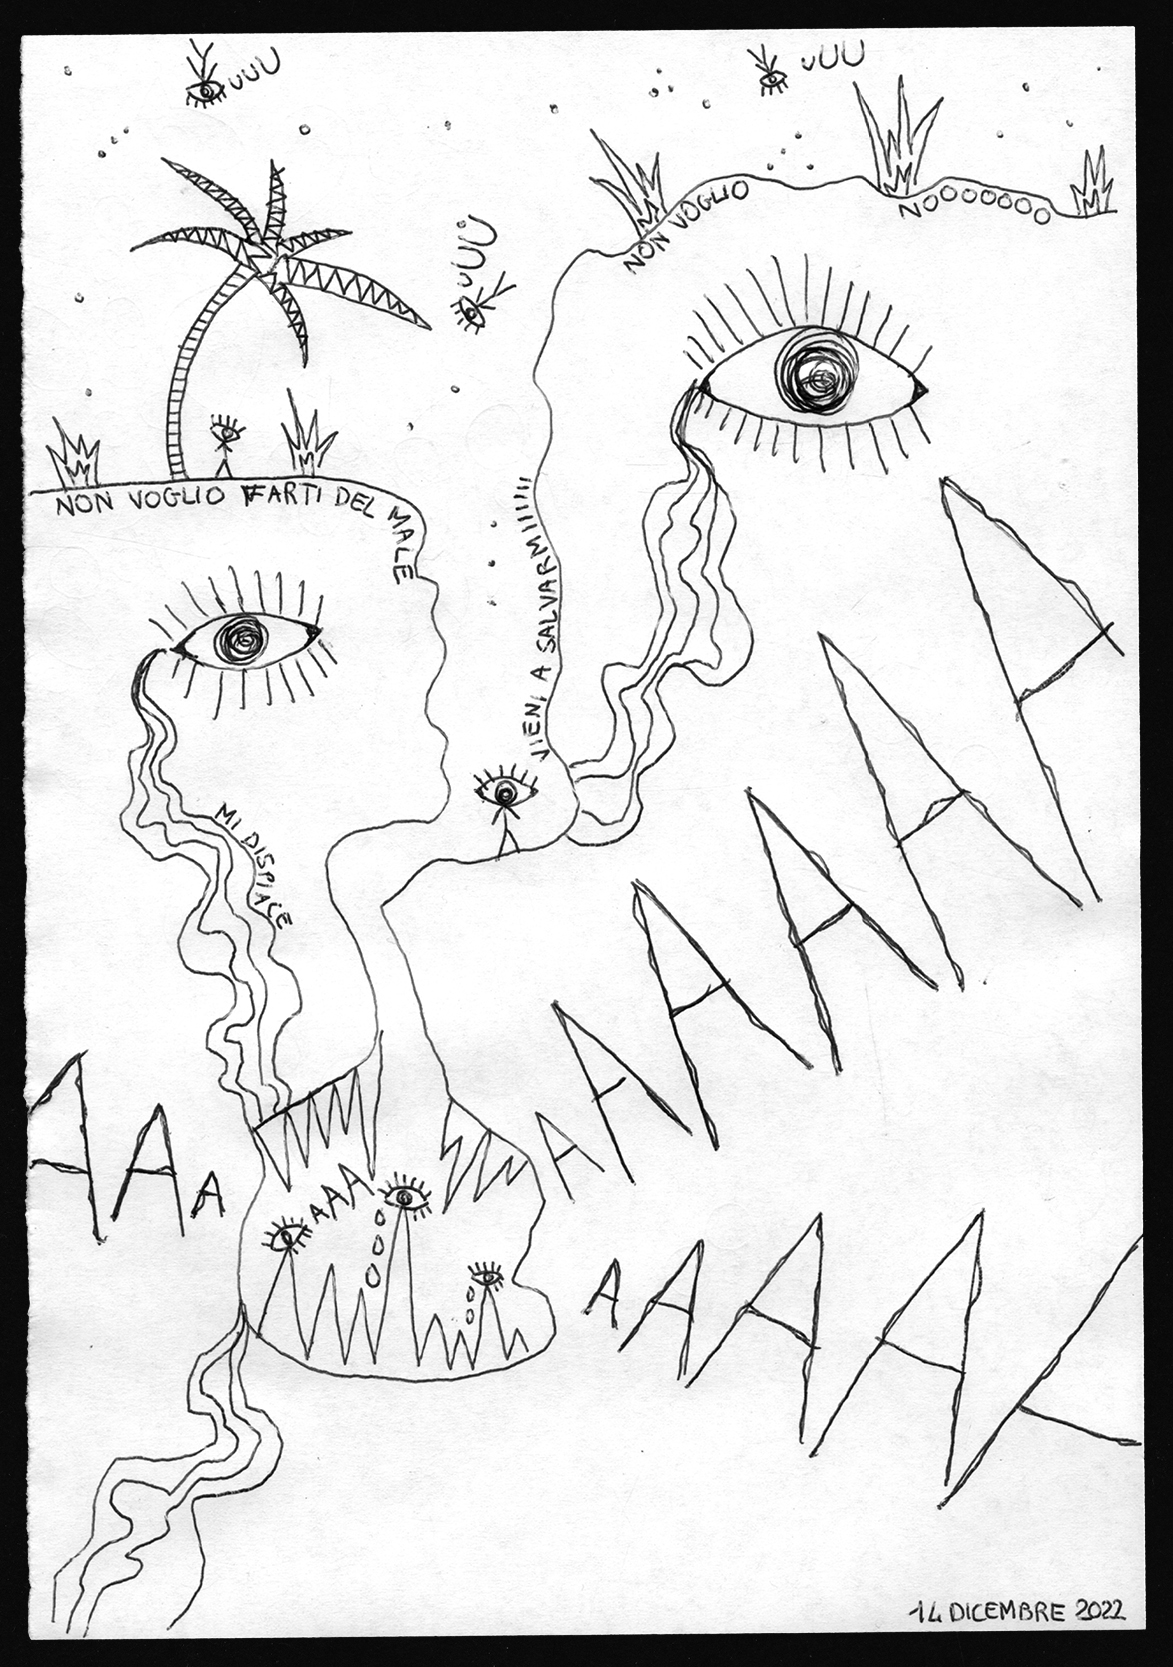 UUU
UUU
UUU
NON VOGLIO
NOOOOOOO
NON VOGLIO FARTI DEL MALE
VIENI A SALVARMIIIIII
MI DISPIACE
AAAAAA
AAA
AAA
OOO
OOO
AAAAA
14 DICEMBRE 2022